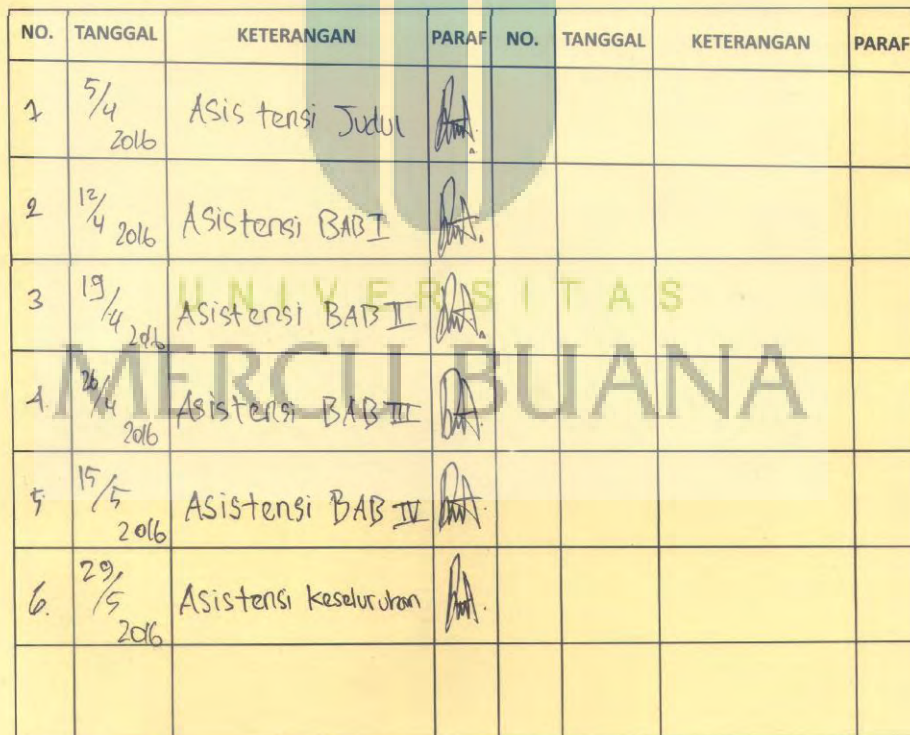 NO. TANGGAL KETERANGAN PARAF NO. TANGGAL KETERANGAN PARAF
1 5/4 2016 Asistensi Judul
2 12/4 2016 Asistensi BAB I
3 19/4 2016 Asistensi BAB II
4. 26/4 2016 Asistensi BAB III
5 15/5 2016 Asistensi BAB IV
6. 29/5 2016 Asistensi keseluruhan
UNIVERSITAS
MERCU BUANA